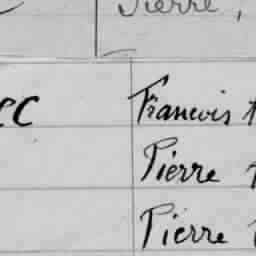 Pierre,
CC Francois
Pierre
Pierre